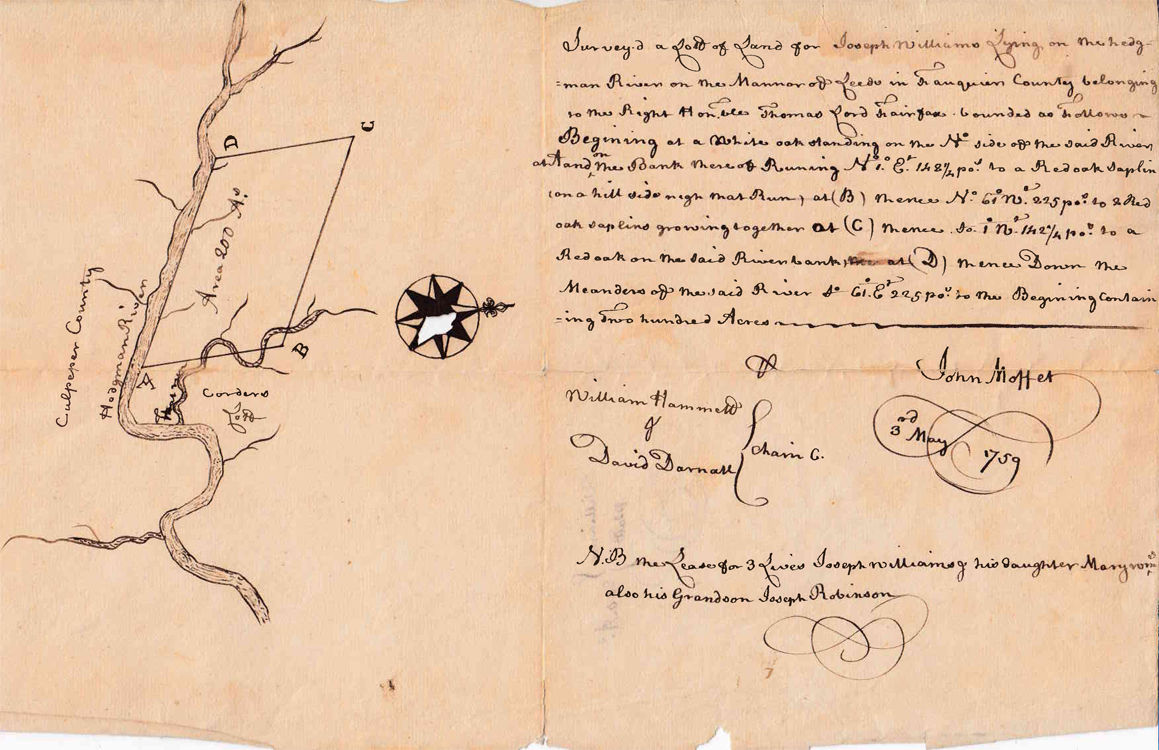 Survey'd a Lott of Land for Joseph Williams Lying on the hedg=
=man River on the Mannor of Leeds in Fauquier County belonging
to the Right Hon.ble Thomas Lord Fairfax. bounded as Followes
Begining at a White oak standing on the No. side of the said River
at A and on the Bank there of Runing No. 1° Et. 142/4 pos. to a Red oak Saplin
(on a hill side nigh that Run) at (B) thence No. 61° Wt. 225 pos. to 2 Red
oak saplins growing together at (C) thence So. 1° Wt. 142/4 pos. to a
Red oak on the said River bank at (D) thence Down the
Meanders of the said River So. 61° Et 225 pos. to the Begining Contain
=ing Two hundred Acres
John Moffet
William Hammett
&
David Darnall
Chain C.
3rd May 1759
N.B the Lease for 3 Lives Joseph Williams & his daughter Mary
also his Grandson Joseph Robinson
7
C
D
Area 200 As.
Culpeper County
Hedgman River
A
B
Corders
Lott